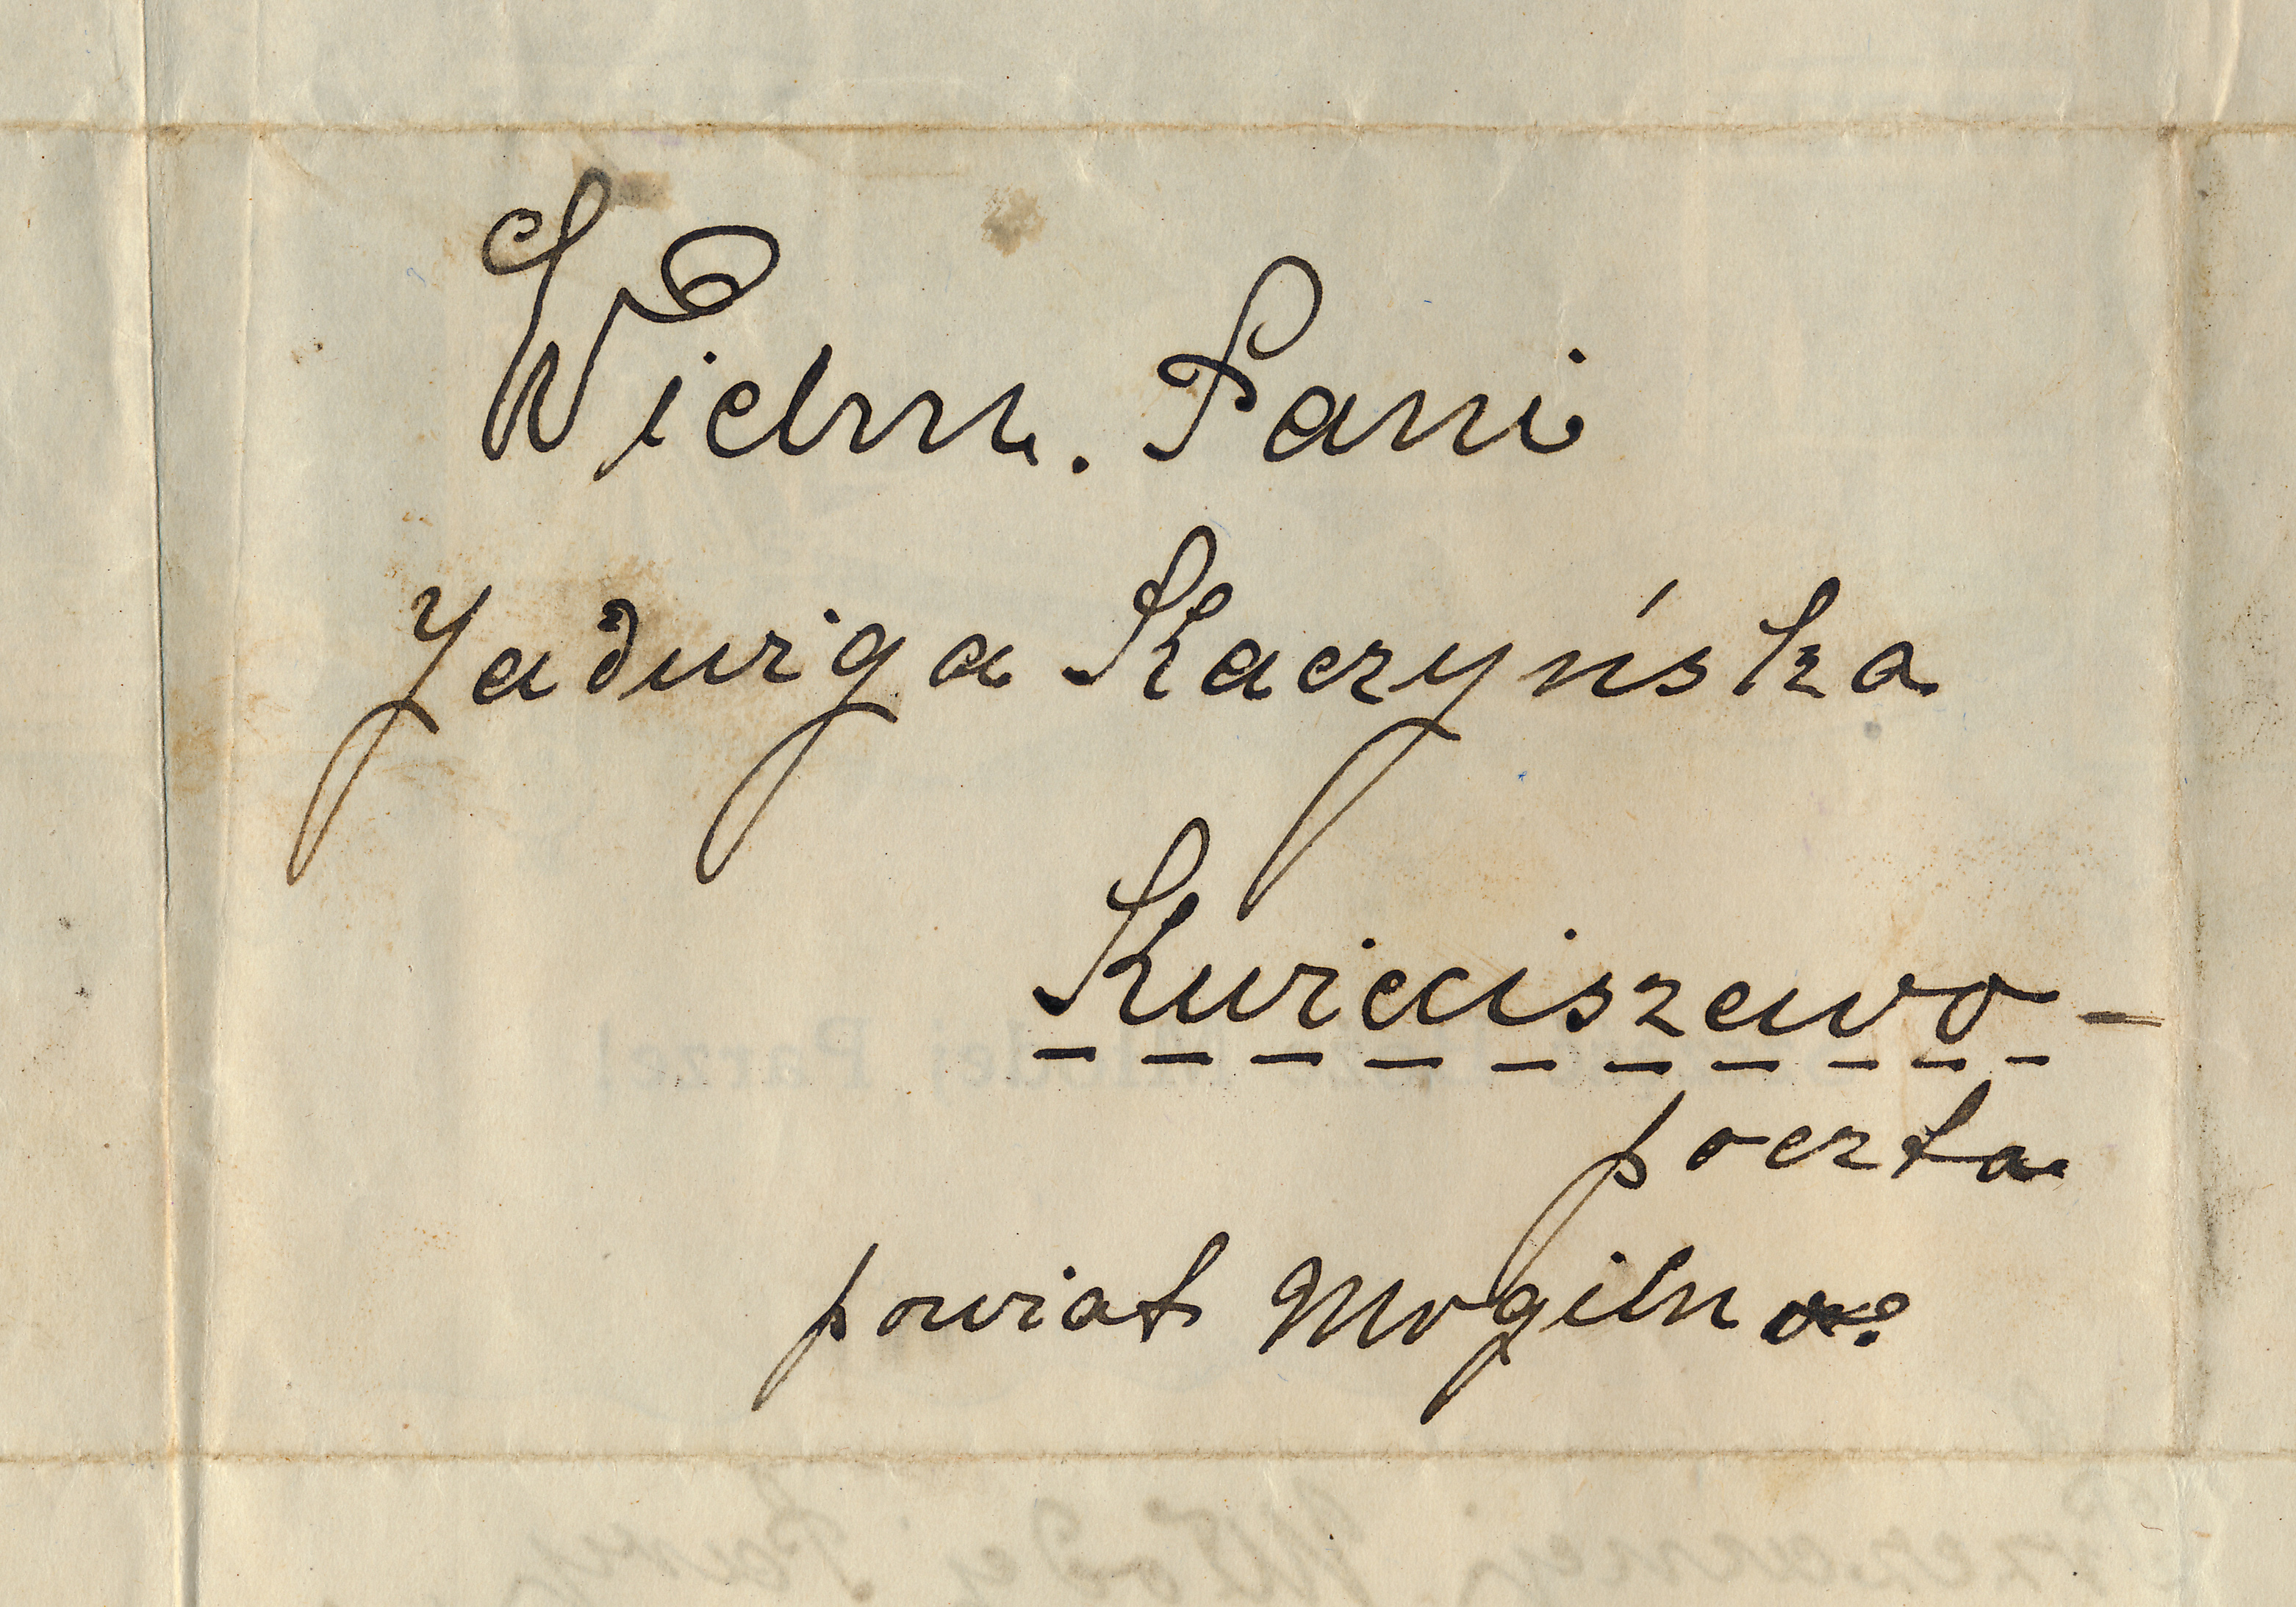 Wielm. Pani
Jadwiga Kaczyńska
Kwieciszewo -
poczta
powiat Mogilno.